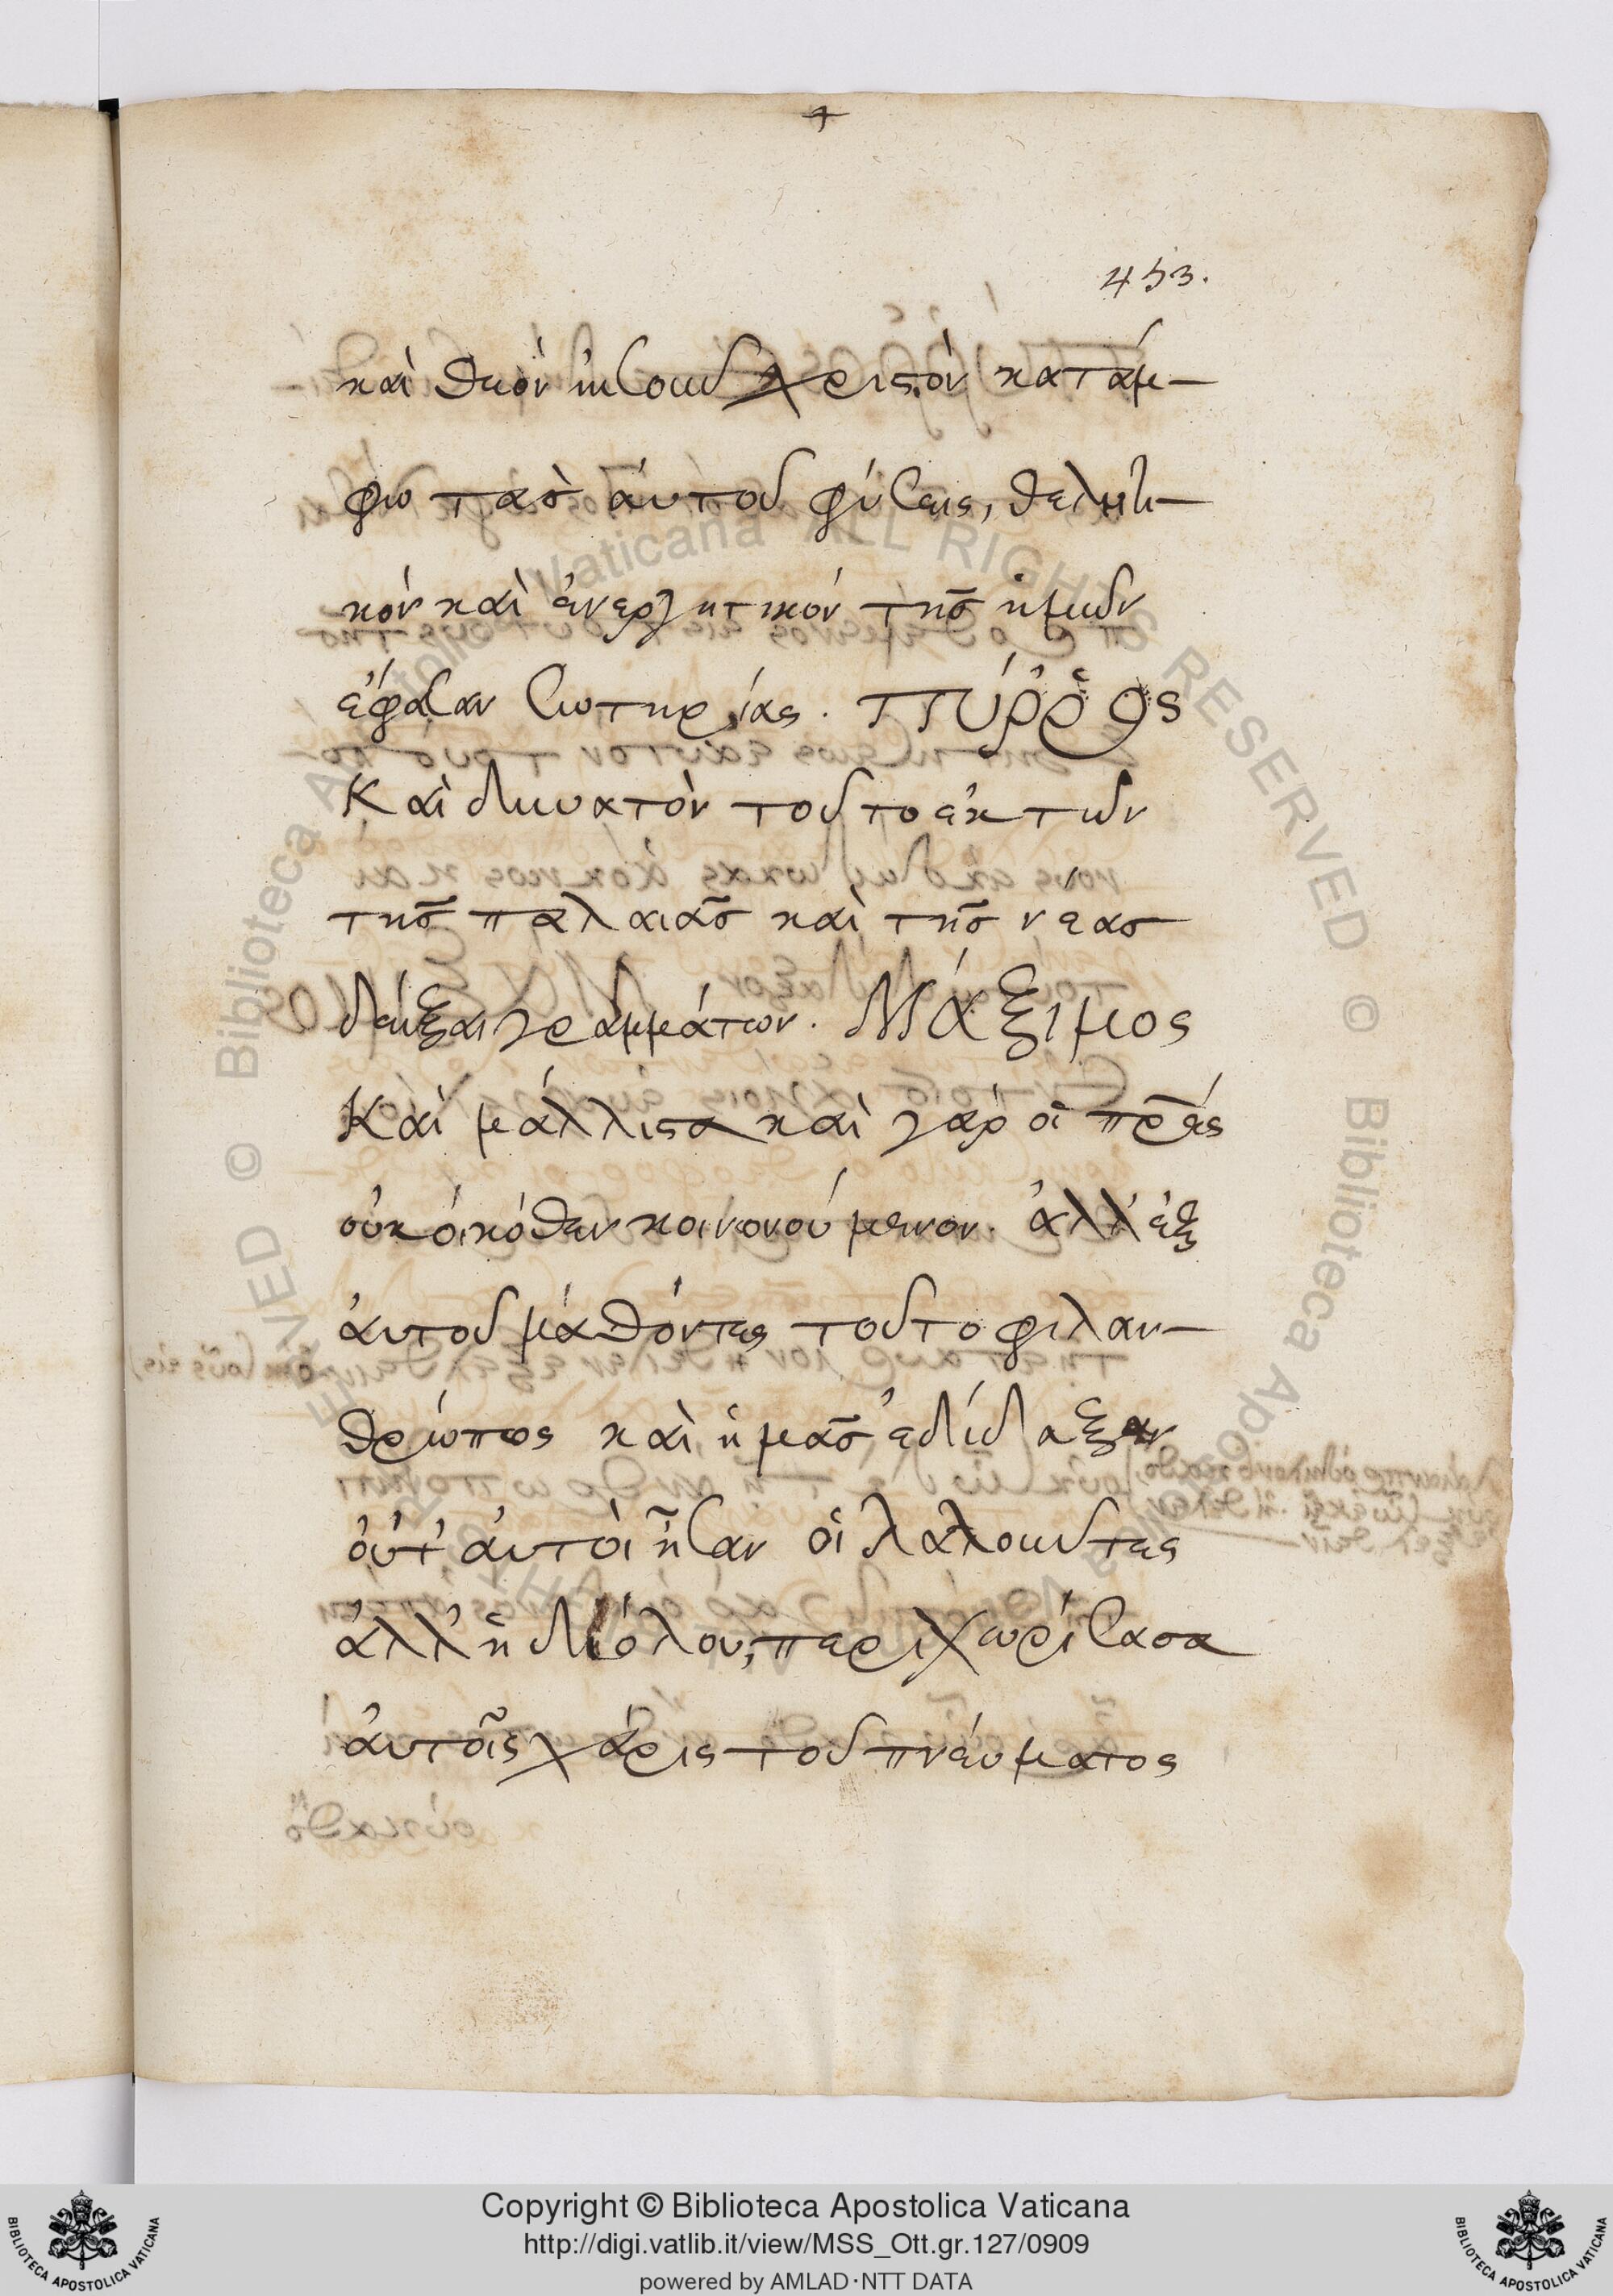 +
453.
καὶ θεὸν ἰησοῦν χριστὸν κατάμ-
φω τὰσ ἀυτοῦ φύσεις, θελητι-
κὸν καὶ ἐνεργητικὸν τῆσ ἡμῶν
ἔφασαν σωτηρίας. Πύῤῥος
Καὶ δυνατὸν τοῦτο ἐκ τῶν
τῆσ παλαιᾶσ καὶ τῆσ νέασ
δεῖξαι γραμμάτων. Μάξιμος
Καὶ μάλλιστα καὶ γὰρ οἱ πρες
οὐκ ὀικόθεν κοινωνούμενον. ἀλλ' ἐξ
ἀυτοῦ μαθόντες τοῦτο φιλαν-
θρώπως καὶ ἡμᾶσ ἐδίδαξαν
ὀυτ' ἀυτὸι ἦσαν οἱ λαλοῦντες
ἀλλ' ἡ διόλου, περιχωρήσασα
ἀυτοῖς χάρις τοῦ πνέυματος
Copyright © Biblioteca Apostolica Vaticana
http://digi.vatlib.it/view/MSS_Ott.gr.127/0909
powered by AMLAD·NTT DATA
BIBLIOTECA APOSTOLICA VATICANA
BIBLIOTECA APOSTOLICA VATICANA